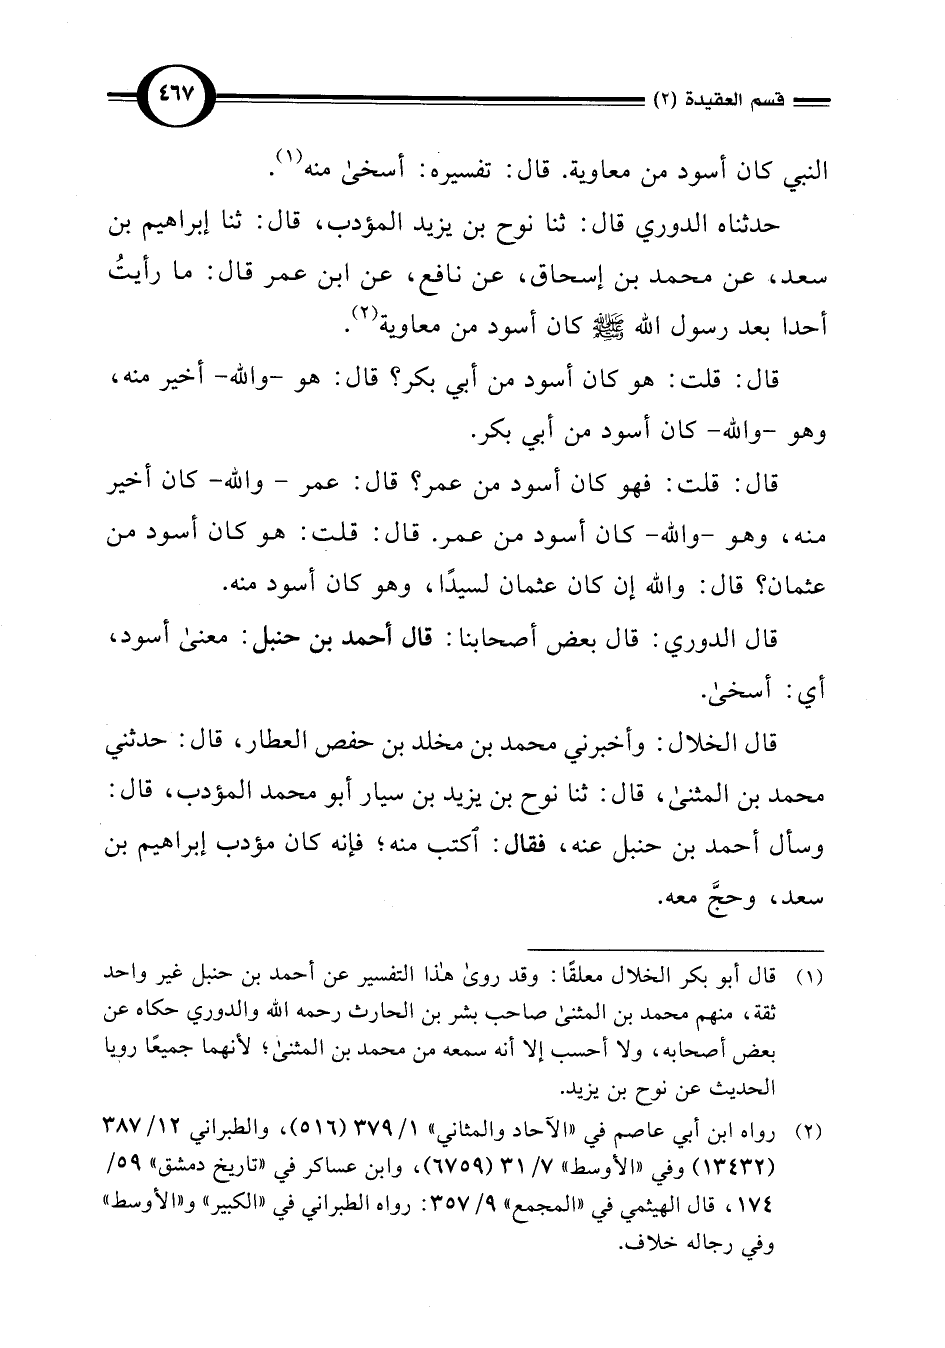 قسم العقيدة (٢)
٤٦٧
النبي كان أسود من معاوية. قال: تفسيره: أسخىٰ منه(١).
حدثناه الدوري قال: ثنا نوح بن يزيد المؤدب، قال: ثنا إبراهيم بن
سعد، عن محمد بن إسحاق، عن نافع، عن ابن عمر قال: ما رأيتُ
أحدا بعد رسول الله ﷺ كان أسود من معاوية(٢).
قال: قلت: هو كان أسود من أبي بكر؟ قال: هو -والله- أخير منه،
وهو -والله- كان أسود من أبي بكر.
قال: قلت: فهو كان أسود من عمر؟ قال: عمر - والله- كان أخير
منه، وهو -والله- كان أسود من عمر. قال: قلت: هو كان أسود من
عثمان؟ قال: والله إن كان عثمان لسيدًا، وهو كان أسود منه.
قال الدوري: قال بعض أصحابنا: قال أحمد بن حنبل: معنىٰ أسود،
أي: أسخىٰ.
قال الخلال: وأخبرني محمد بن مخلد بن حفص العطار، قال: حدثني
محمد بن المثنىٰ، قال: ثنا نوح بن يزيد بن سيار أبو محمد المؤدب، قال:
وسأل أحمد بن حنبل عنه، فقال: ٱكتب منه؛ فإنه كان مؤدب إبراهيم بن
سعد، وحجَّ معه.
(١) قال أبو بكر الخلال معلقًا: وقد روىٰ هٰذا التفسير عن أحمد بن حنبل غير واحد
ثقة، منهم محمد بن المثنىٰ صاحب بشر بن الحارث رحمه الله والدوري حكاه عن
بعض أصحابه، ولا أحسب إلا أنه سمعه من محمد بن المثنىٰ؛ لأنهما جميعًا رويا
الحديث عن نوح بن يزيد.
(٢) رواه ابن أبي عاصم في «الآحاد والمثاني» ١/ ٣٧٩ (٥١٦)، والطبراني ١٢/ ٣٨٧
(١٣٤٣٢) وفي «الأوسط» ٧/ ٣١ (٦٧٥٩)، وابن عساكر في «تاريخ دمشق» ٥٩/
١٧٤، قال الهيثمي في «المجمع» ٩/ ٣٥٧: رواه الطبراني في «الكبير» و«الأوسط»
وفي رجاله خلاف.